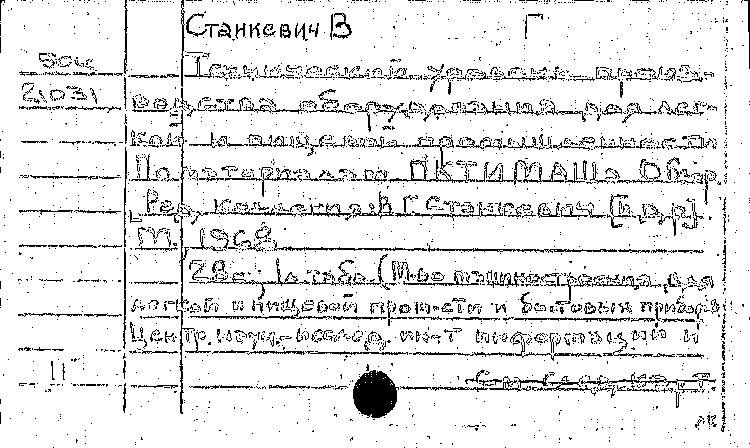 Станкевич В Г
50ц
21031
Технический уровень произ-
водства оборудования для лег-
кой и пищевой промышленности
По материалам ПКТИМАШа Обзор.
[Ред. коллегия: В.Г. Станкевич [и др].
М., 1968
28с.; 1л. табл. (М-во машиностроения для
легкой и пищевой пром-сти и бытовых приборов
Центр. науч.-исслед. ин-т информации и
II
См. след. кар. т.